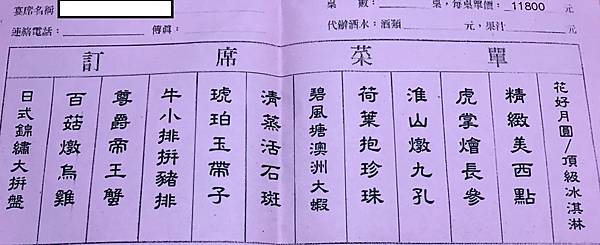 宴席名稱
桌 數: 桌,每桌單價: 11800 元
連絡電話: 傳真:
代辦酒水:酒類 元,果汁 元
訂席菜單
花好月圓/頂級冰淇淋
精緻美西點
虎掌燴長參
淮山燉九孔
荷葉抱珍珠
碧風塘澳洲大蝦
清蒸活石斑
琥珀玉帶子
牛小排拼豬排
尊爵帝王蟹
百菇燉烏雞
日式錦繡大拼盤